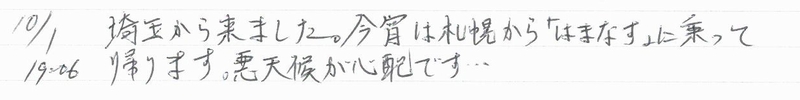 10/1 埼玉から来ました。今宵は札幌から「はまなす」に乗って
19:06 帰ります。悪天候が心配です…